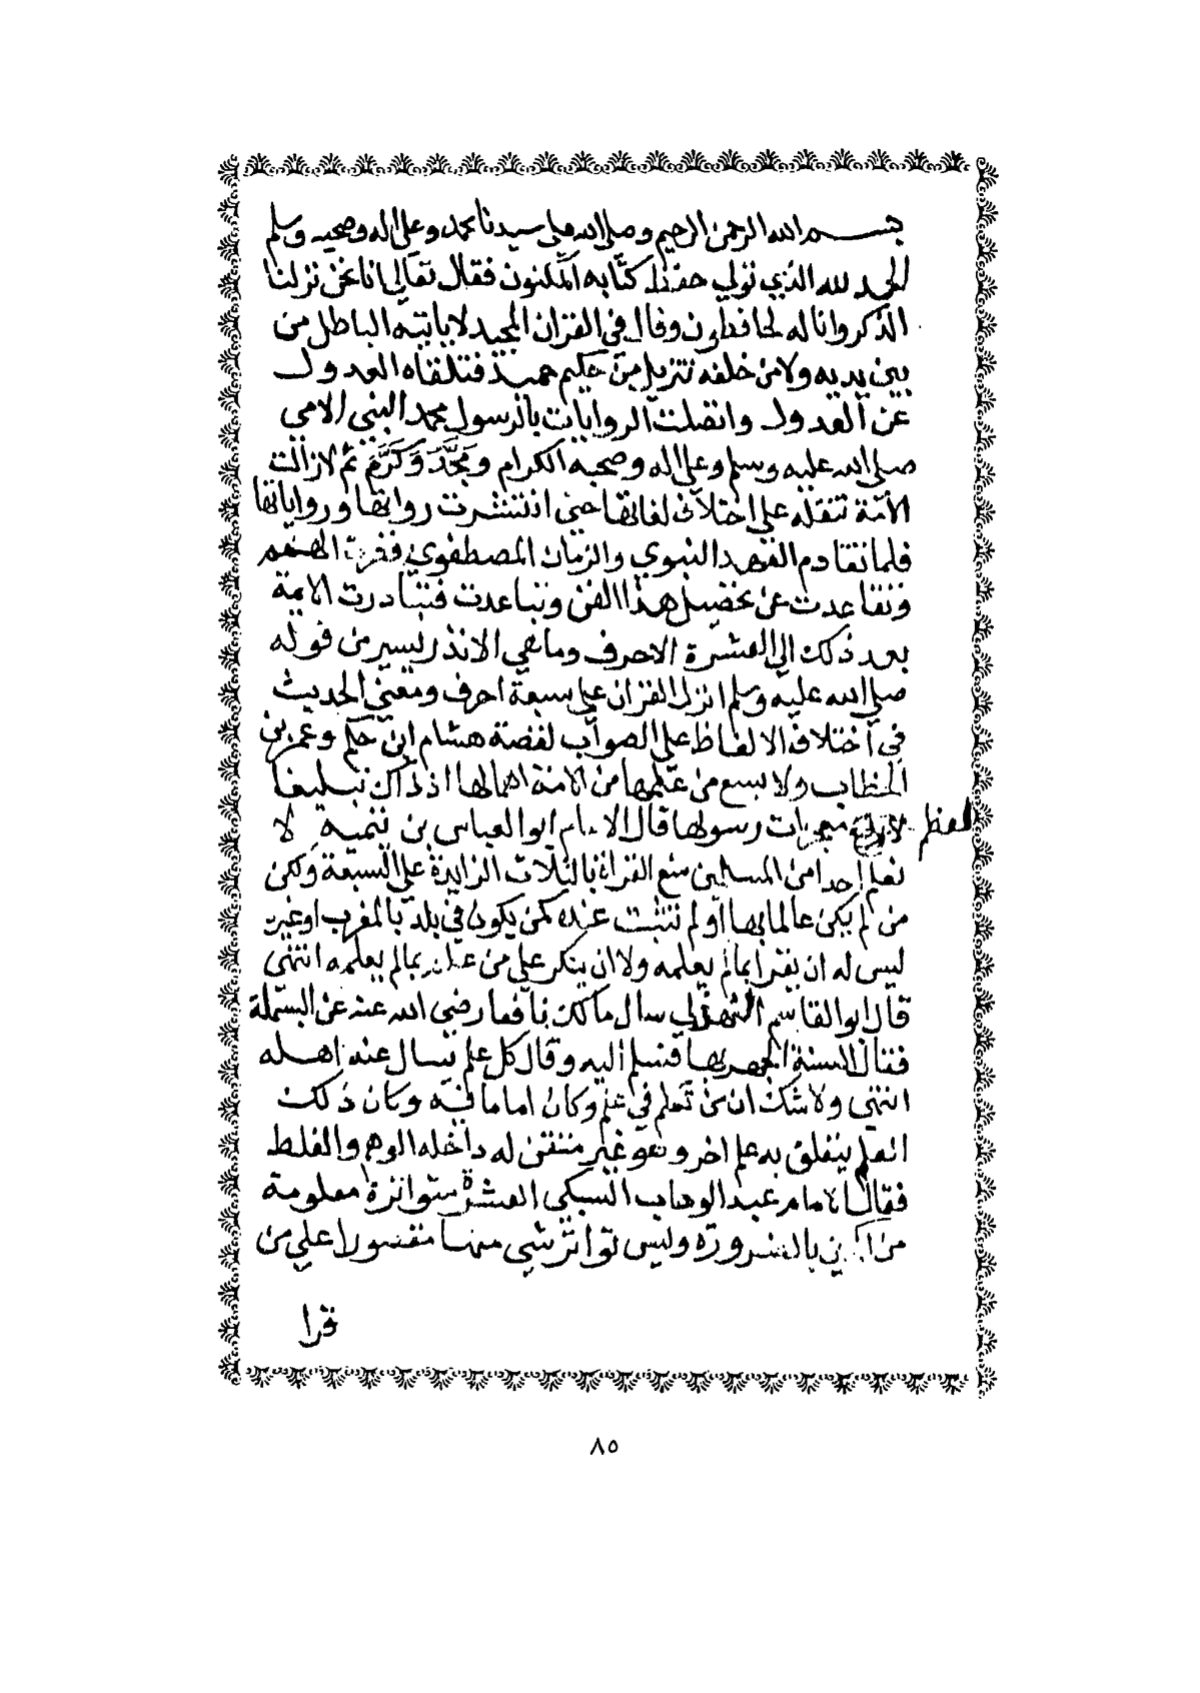 بسم الله الرحمن الرحيم وصلى الله على سيدنا محمد وعلى اله وصحبه وسلم
الحمد لله الذي تولي حفظ كتابه المكنون فقال تعالى انا نحن نزلنا
الذكر وانا له لحافظون وقال في القران المجيد لا ياتيه الباطل من
بين يديه ولا من خلفه تنزيل من حكيم حميد فتلقاه العدول
عن العدول واتصلت الروايات بالرسول محمد النبي الامي
صلى الله عليه وسلم وعلى اله وصحبه الكرام ومَجَّدَ وَكَرَّمَ ثم لا زالت
الأمة تنقله على اختلاف لغاتها حتى انتشرت رواتها ورواياتها
فلما تقادم العهد النبوي والزمان المصطفوي ففترت الهمم
وتقاعدت عن تحصيل هذا الفن وتباعدت فتبادرت الايمة
بعد ذلك الى العشرة الاحرف وما هي الا نذر يسير من قوله
صلى الله عليه وسلم انزل القران على سبعة احرف ومعنى الحديث
في اختلاف الالفاظ على الصواب لقصة هشام ابن حكم وعمر بن
الخطاب ولا يسع من علمها من الامة اهمالها اذ ذاك تبليغا
لعظم معجزات رسولها قال الامام ابو العباس بن تيمية لا
نعلم احدا من المسلمين منع القراة بالثلاث الزايدة على السبعة ولكن
من لم يكن عالما بها او لم تثبت عنده كمن يكون في بلد بالمغرب او غيره
ليس له ان يقرا بما لم يعلمه ولا ان ينكر على من علم بما لم يعلمه انتهى
قال ابو القاسم الهذلي سال مالك نافعا رضي الله عنه عن البسملة
فقال السنة الجهر بها فسلم اليه وقال كل علم يسال عنه اهله
انتهى ولا شك ان من تعلم في علم وكان اماما فيه وكان ذلك
العلم يتعلق به علم اخر وهو غير متقن له داخله الوهم والغلط
فقال الامام عبد الوهاب السبكي العشرة متواترة معلومة
من الدين بالضرورة وليس تواتر شي منها مقصورا على من
قرا
٨٥